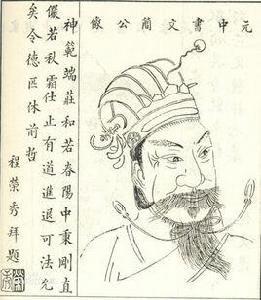 元中書文簡公像
神範端莊和若春陽中秉剛直
儼若秋霜任止有道進退可法允
矣令德匹休前哲
程榮秀拜題